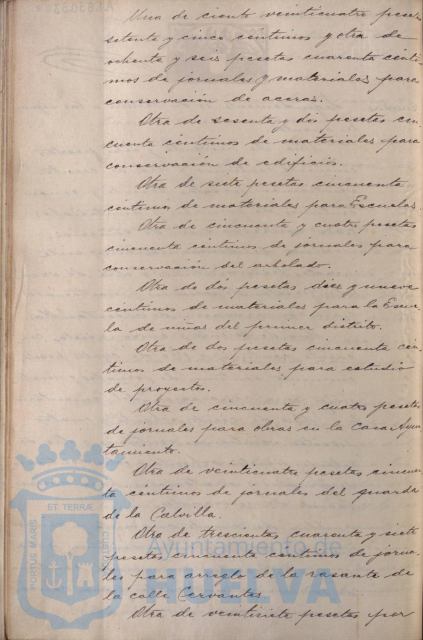 Una de ciento veinticuatro pesetas
setenta y cinco céntimos y otra de
ochenta y seis pesetas cuarenta cénti-
mos de jornales y materiales para
conservación de aceras.
Otra de sesenta y dos pesetas cin
cuenta céntimos de materiales para
conservación de edificios.
Otra de siete pesetas cincuenta
céntimos de materiales para Escuelas.
Otra de cincuenta y cuatro pesetas
cincuenta céntimos de jornales para
conservación del arbolado.
Otra de dos pesetas diez y nueve
céntimos de materiales para la Escue-
la de niñas del primer distrito.
Otra de dos pesetas cincuenta cén-
timos de materiales para estudio
de proyectos.
Otra de cincuenta y cuatro pesetas
de jornales para obras en la Casa Ayun
tamiento.
Otra de veinticuatro pesetas cincuen
ta céntimos de jornales del guarda
de la Calvilla.
Otra de trescientas cuarenta y siete
pesetas cincuenta céntimos de jorna-
les para arreglo de la rasante de
la calle Cervantes.
Otra de veintisiete pesetas por
Ayuntamiento de
HUELVA
PORTUS MARIS
ET TERRÆ
CUSTODIA